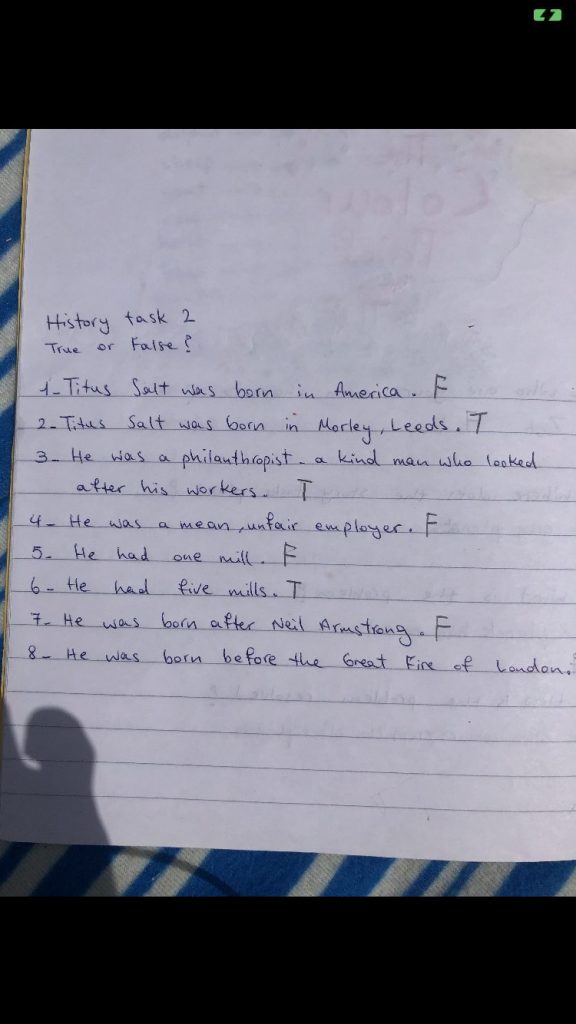 History task 2
True or False?
1- Titus Salt was born in America. F
2- Titus Salt was born in Morley, Leeds. T
3- He was a philanthropist - a kind man who looked
after his workers. T
4- He was a mean, unfair employer. F
5- He had one mill. F
6- He had five mills. T
7- He was born after Neil Armstrong. F
8- He was born before the Great Fire of London.